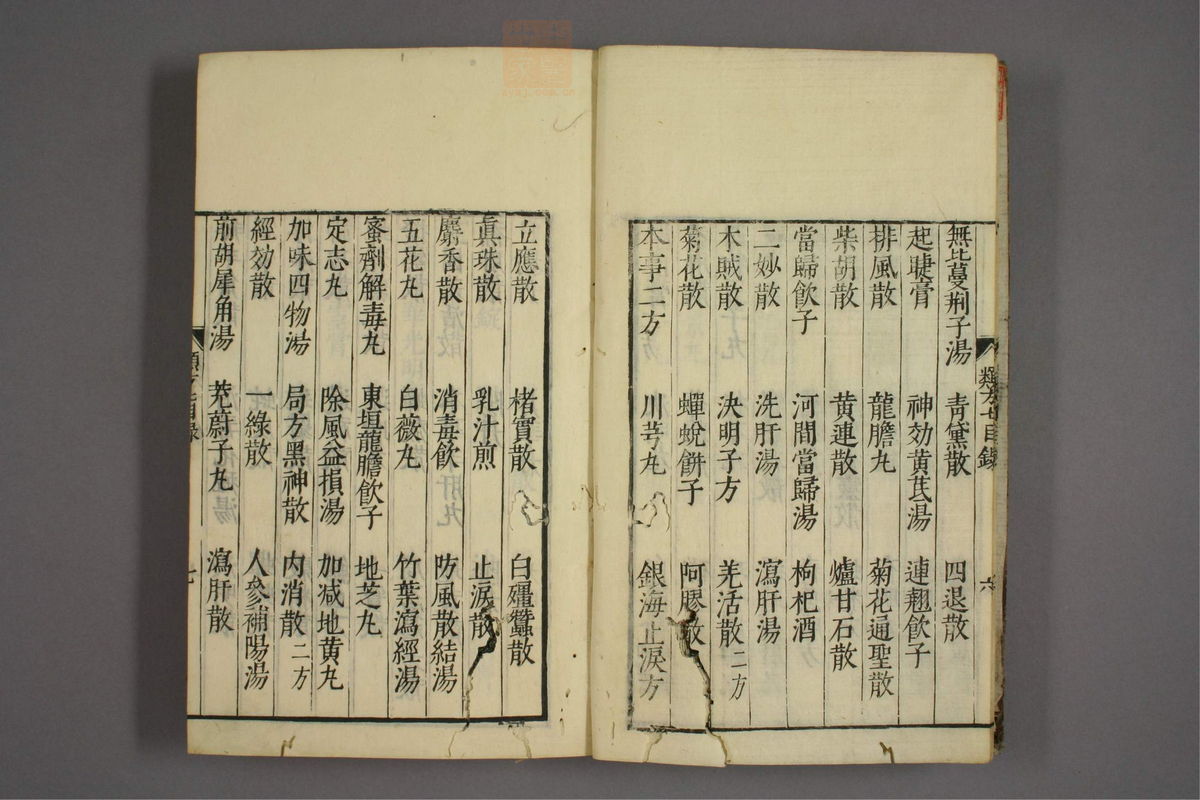 無比蔓荆子湯 青黛散 四退散
起睫膏 神効黄芪湯 連翹飲子
排風散 龍膽丸 菊花通聖散
柴胡散 黄連散 爐甘石散
當歸飲子 河間當歸湯 枸杞酒
二妙散 洗肝湯 瀉肝湯
木賊散 決明子方 羌活散二方
菊花散 蟬蛻餅子 阿膠散
本事二方 川芎丸 銀海止淚方
類方七目録 六
立應散 楮實散 白殭蠶散
真珠散 乳汁煎 止淚散
麝香散 消毒飲 防風散結湯
五花丸 白薇丸 竹葉瀉經湯
蜜劑解毒丸 東垣龍膽飲子 地芝丸
定志丸 除風益損湯 加减地黄丸
加味四物湯 局方黑神散 内消散二方
經効散 一綠散 人參補陽湯
前胡犀角湯 茺蔚子丸 瀉肝散